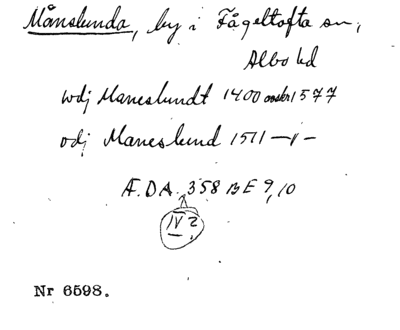 Månslunda, by i Fågeltofta sn,
Albo hd
wdj Maneslundt 1400 1577
odj Maneslund 1511 —〃—
Æ.DA. 358 BE 9, 10
IV?
Nr 6598.